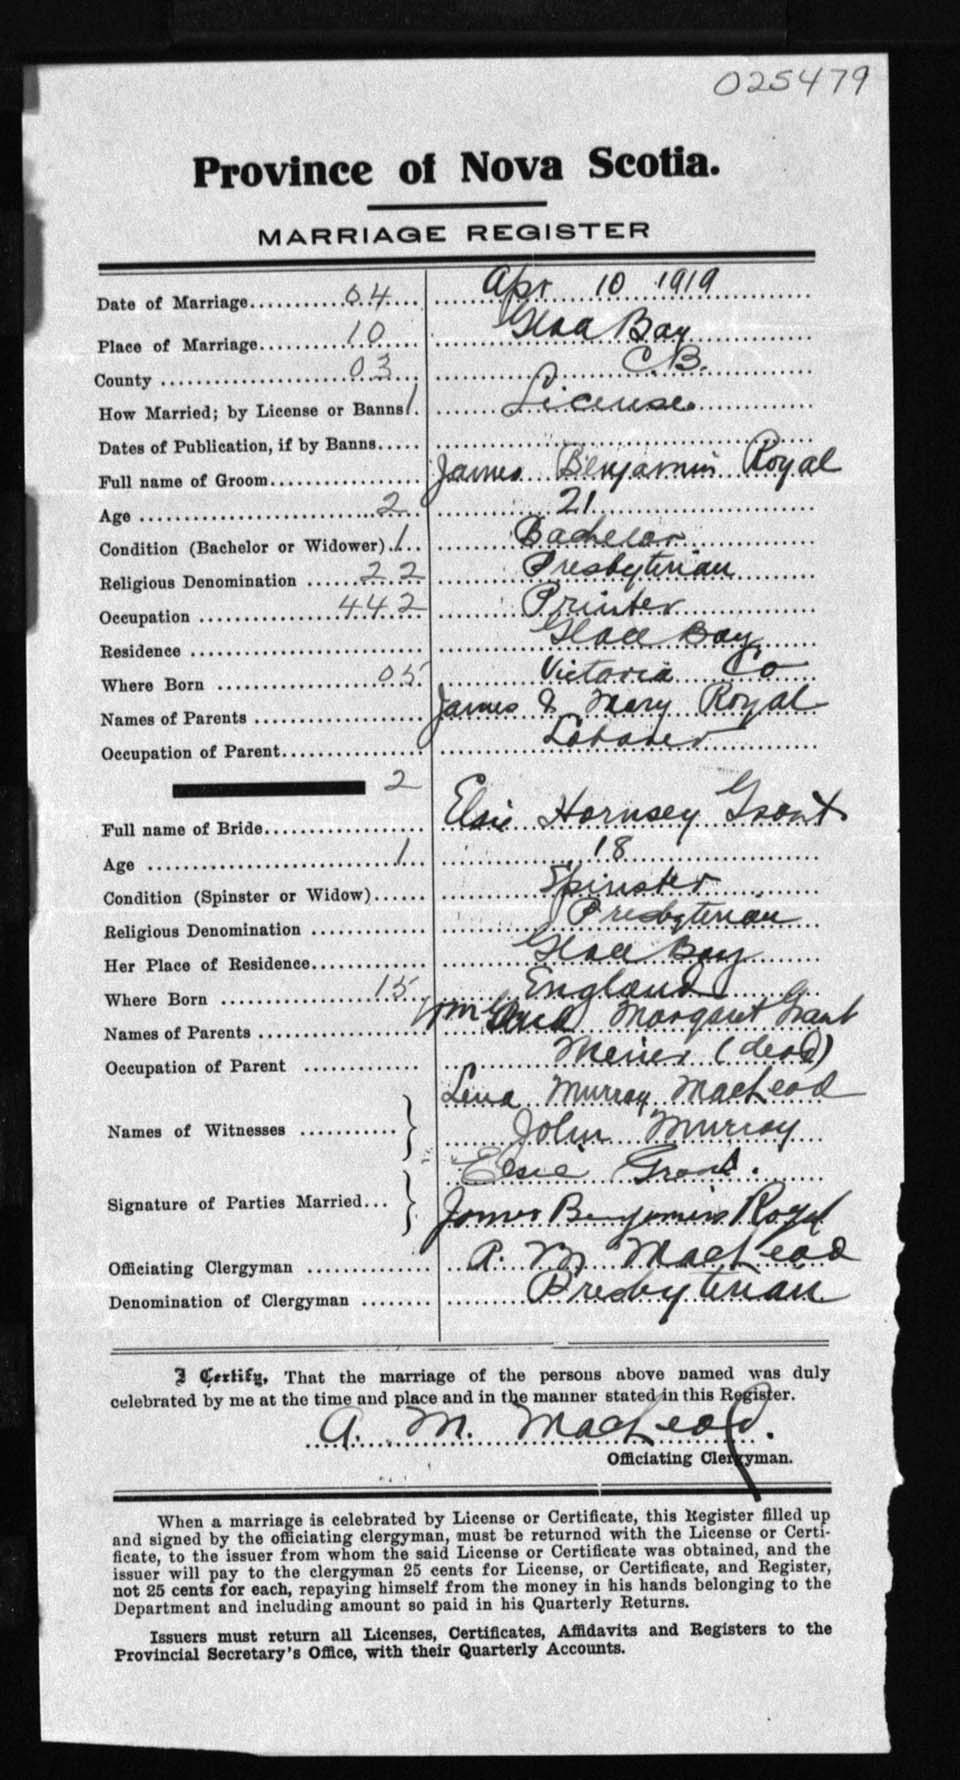 025479
Province of Nova Scotia.
MARRIAGE REGISTER
Date of Marriage 04 Apr 10 1919
Place of Marriage 10 Glace Bay
County 03 C.B.
How Married; by License or Banns 1 License
Dates of Publication, if by Banns
Full name of Groom James Benjamin Royal
Age 2 21
Condition (Bachelor or Widower) 1 Bachelor
Religious Denomination 22 Presbyterian
Occupation 442 Printer
Residence Glace Bay
Where Born 05 Victoria Co
Names of Parents James & Mary Royal
Occupation of Parent Laborer
2
Full name of Bride Elsie Hornsey Grant
Age 1 18
Condition (Spinster or Widow) Spinster
Religious Denomination Presbyterian
Her Place of Residence Glace Bay
Where Born 15 England
Names of Parents Wm and Margaret Grant
Occupation of Parent Miner (dead)
Lena Murray MacLeod
Names of Witnesses John Murray
Elsie Grant.
Signature of Parties Married James Benjamin Royal
Officiating Clergyman A. M. MacLeod
Denomination of Clergyman Presbyterian
I Certify, That the marriage of the persons above named was duly
celebrated by me at the time and place and in the manner stated in this Register.
A. M. MacLeod.
Officiating Clergyman.
When a marriage is celebrated by License or Certificate, this Register filled up
and signed by the officiating clergyman, must be returned with the License or Certi-
ficate, to the issuer from whom the said License or Certificate was obtained, and the
issuer will pay to the clergyman 25 cents for License, or Certificate, and Register,
not 25 cents for each, repaying himself from the money in his hands belonging to the
Department and including amount so paid in his Quarterly Returns.
Issuers must return all Licenses, Certificates, Affidavits and Registers to the
Provincial Secretary's Office, with their Quarterly Accounts.